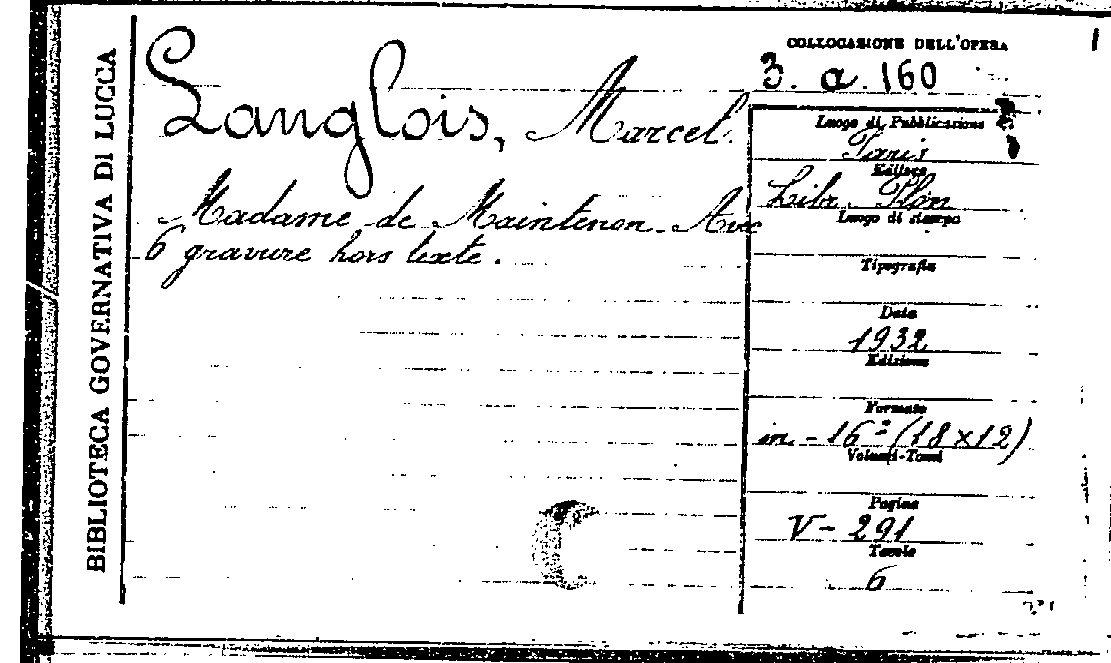 BIBLIOTECA GOVERNATIVA DI LUCCA
Langlois, Marcel.
Madame de Maintenon. Avec
6 gravure hors texte.
COLLOCAZIONE DELL'OPERA
3. a. 160
Luogo di Pubblicazione
Paris
Editore
Libr. Plon
Luogo di stampa
Tipografia
Data
1932
Edizione
Formato
in - 16º (18x12)
Volumi-Tomi
Pagine
V - 291
Tavole
6